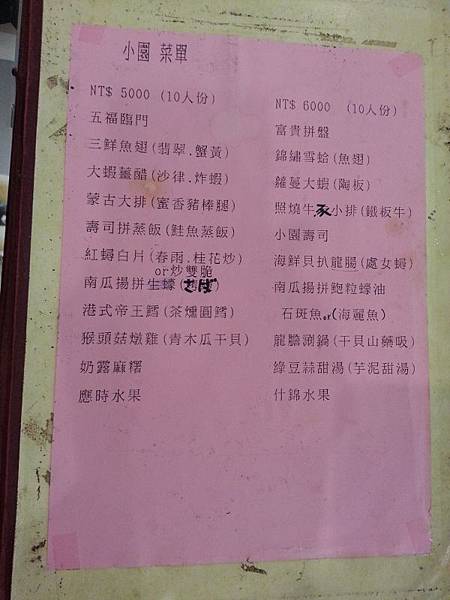 小園 菜單
NT$ 5000 (10人份)
五福臨門
三鮮魚翅(翡翠.蟹黃)
大蝦薑醋(沙律.炸蝦)
蒙古大排(蜜香豬棒腿)
壽司拼蒸飯(鮭魚蒸飯)
紅蟳白片(春雨.桂花炒)
or炒雙脆
南瓜揚拼生蠔
港式帝王鱈(茶燻圓鱈)
猴頭菇燉雞(青木瓜干貝)
奶露麻糬
應時水果
NT$ 6000 (10人份)
富貴拼盤
錦繡雪蛤(魚翅)
蘿蔓大蝦(陶板)
照燒牛 小排(鐵板牛)
小園壽司
海鮮貝扒龍腸(處女蟳)
南瓜揚拼鮑粒蠔油
石斑魚or(海麗魚)
龍膽涮鍋(干貝山藥吸)
綠豆蒜甜湯(芋泥甜湯)
什錦水果